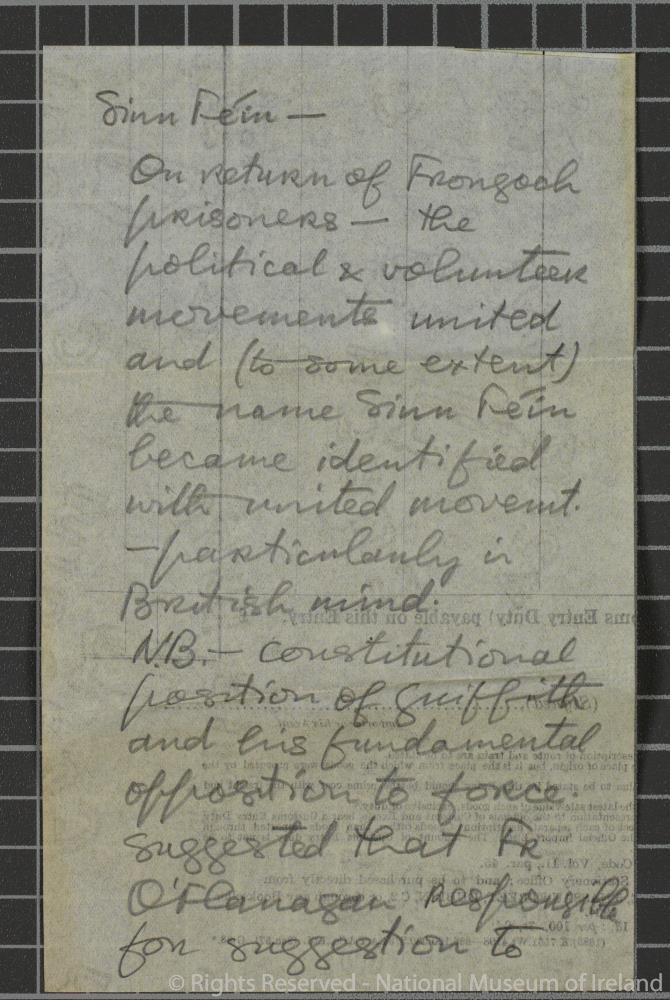 Sinn Féin —
On return of Frongoch
prisoners — the
political & volunteer
movements united
and (to some extent)
the name Sinn Féin
became identified
with united movemt.
— particularly in
British mind.
NB. — constitutional
position of Griffith
and his fundamental
opposition to force.
suggested that Fr
O'Flanagan responsible
for suggestion to
© Rights Reserved - National Museum of Ireland